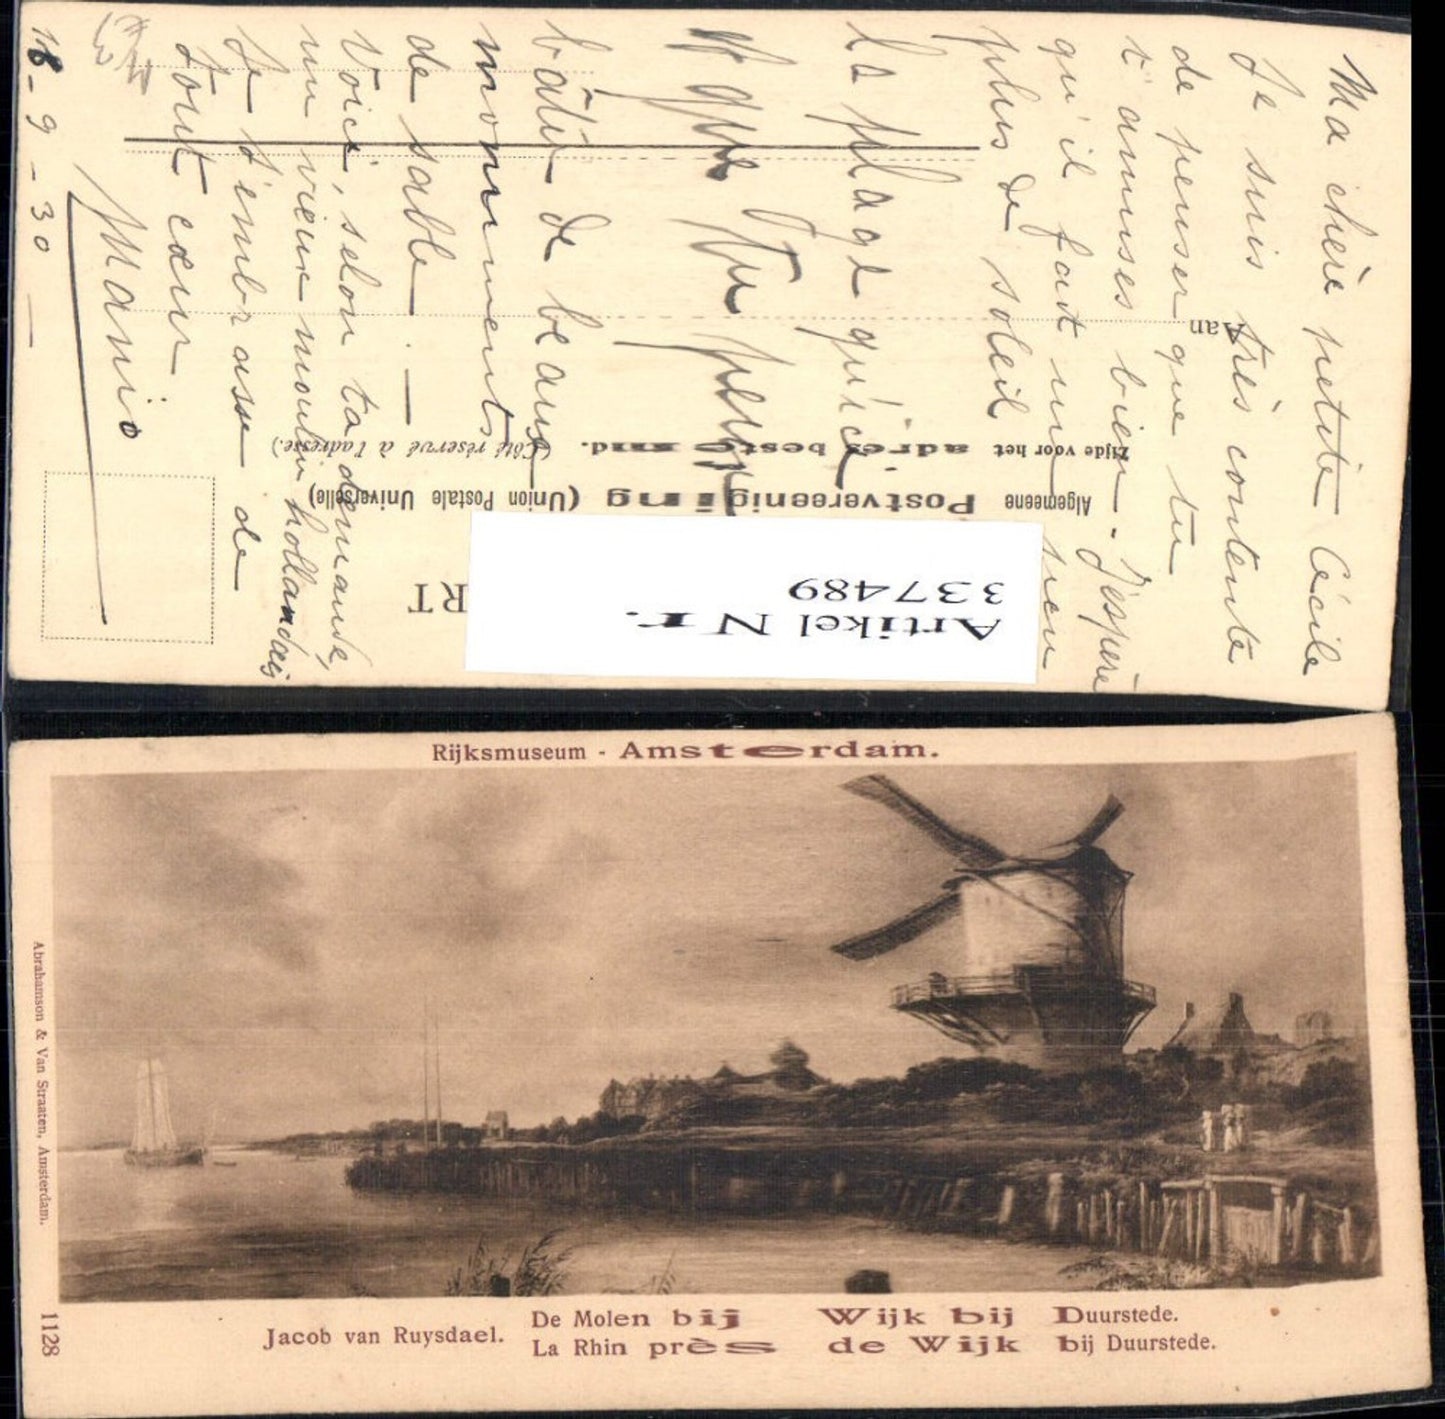 Ma chère petite Cécile
Je suis très contente
de penser que tu
t'amuses bien. J'espère
qu'il fait un peu
plus de soleil
la plage qu'ici
que tu peux
bâtir de beaux
monuments
de sable. —
Voici, selon ta demande,
un vieux moulin hollandais
Je t'embrasse de
tout cœur
Manio
18-9-30
Aan
Zijde voor het adres bestemd. (Côté réservé à l'adresse.)
Algemeene Postvereeniging (Union Postale Universelle)
RT
Artikel Nr.
337489
Rijksmuseum - Amsterdam.
Abrahamson & Van Straaten, Amsterdam.
1128
Jacob van Ruysdael.
De Molen bij Wijk bij Duurstede.
La Rhin près de Wijk bij Duurstede.